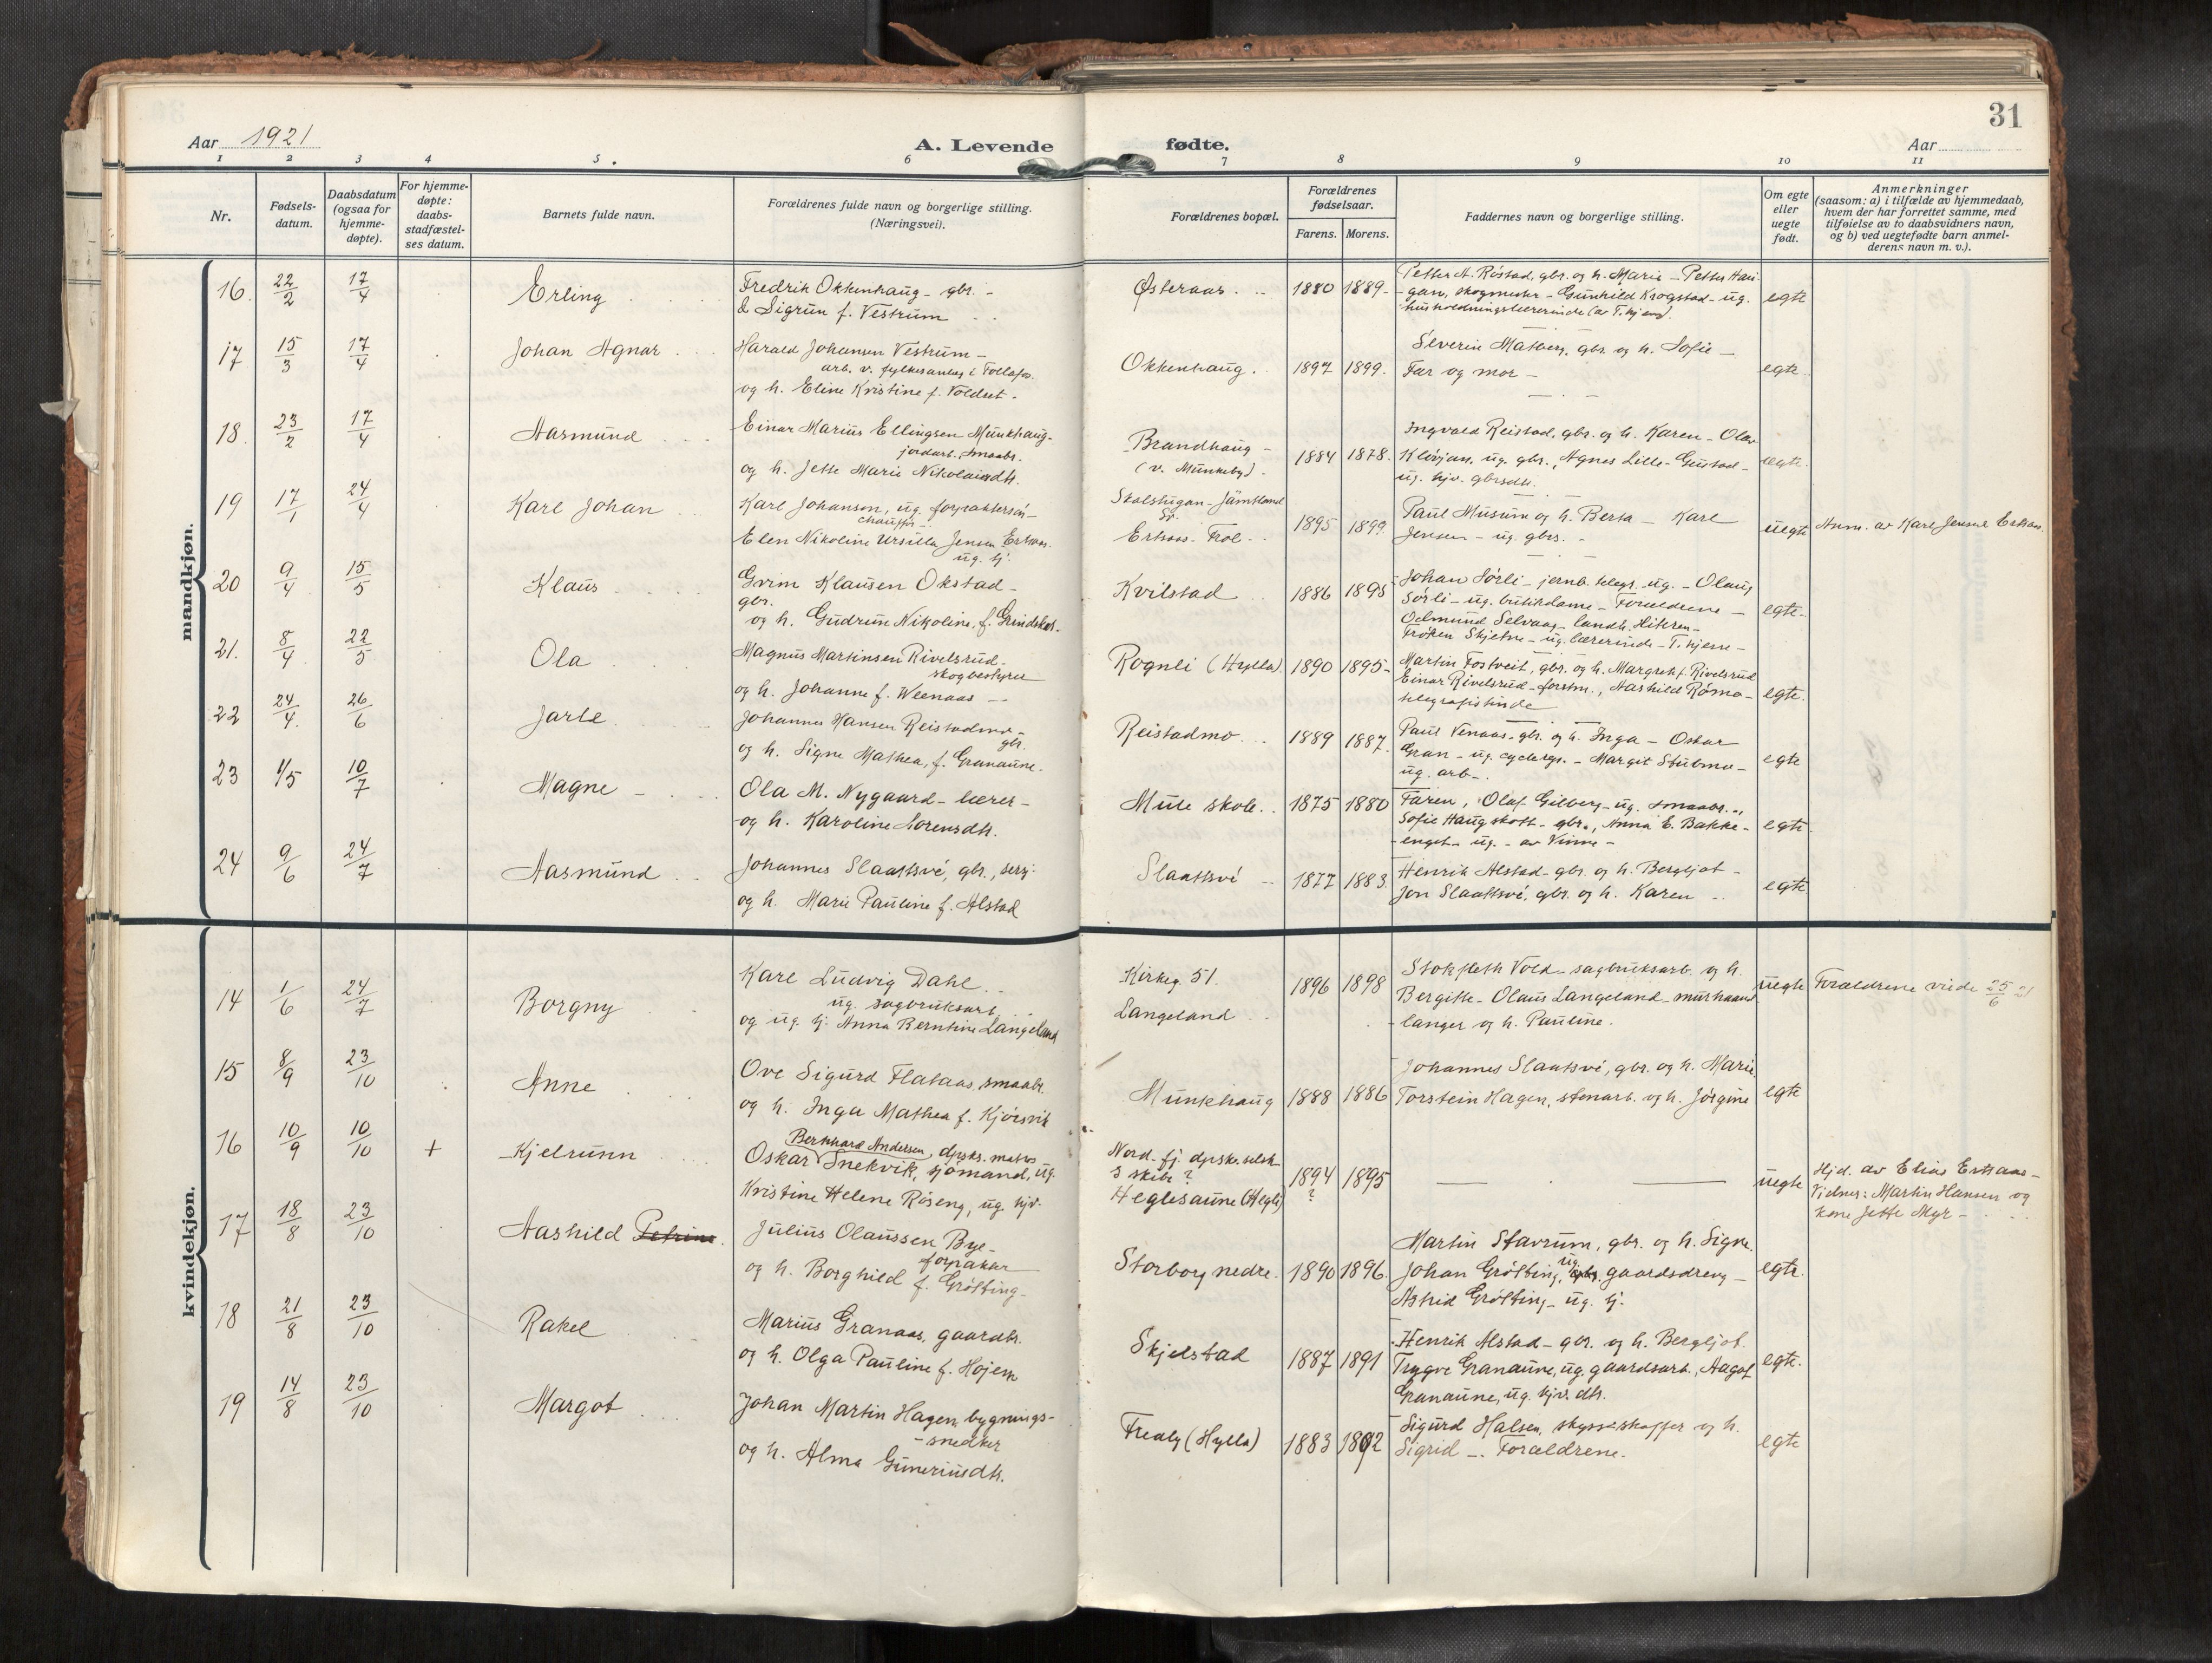 31
Aar 1921
A. Levende
fødte.
Aar
1 2 3 4 5 6 7 8 9 10 11
Nr.
Fødsels-
datum.
Daabsdatum
(ogsaa for
hjemme-
døpte).
For hjemme-
døpte:
daabs-
stadfæstel-
ses datum.
Barnets fulde navn.
Forældrenes fulde navn og borgerlige stilling.
(Næringsvei).
Forældrenes bopæl.
Forældrenes
fødselsaar.
Farens. Morens.
Faddernes navn og borgerlige stilling.
Om egte
eller
uegte
født.
Anmerkninger
(saasom: a) i tilfælde av hjemmedaab,
hvem der har forrettet samme, med
tilføielse av to daabsvidners navn,
og b) ved uegtefødte barn anmel-
derens navn m. v.).
mandkjøn.
16. 22/2 17/4 Erling
Fredrik Okkenhaug - gbr. -
& Sigrun f. Vestrum
Østeraas. 1880 1889.
Petter A. Röstad, gbr. og h. Marie - Petter Hau-
gan, skogmester - Gunhild Krogstad - ug.
husholdningslærerinde
egte
17 15/3 17/4 Johan Agnar
Harald Johansen Vestrum -
arb. v. fylkesanlæg i Follafos.
og h. Eline Kristine f. Voldset.
Okkenhaug. 1897 1899.
Severin Matberg, gbr. og h. Sofie -
Far og mor -
egte
18. 23/2 17/4 Aasmund
Einar Marius Ellingsen Munkhaug-
jordarb. smaabr.
og h. Jette Marie Nikolaisdtr.
Brandhaug -
(v. Munkeby). 1884 1878.
Ingvald Reistad, gbr. og h. Karen - Olav
ug. gbr., Agnes Lille-Gustad -
ug. hjv. gbrsdtr.
egte.
19 17/1 24/4 Karl Johan
Karl Johansen, ug. forpaktersøn -
chauffør -
Elen Nikoline Ursilla Jensen Ertsaas.
ug. tj.
Skalstugan - Jämtland
Sv.
Ertsaas - Frol - 1895 1899.
Paul Musum og h. Berta - Karl
Jensen - ug. gbrs. -
uegte
Anm. av Karl Jensen Ertsaas.
20 9/4 15/5 Klaus
Grim Klausen Okstad -
gbr.
og h. Gudrun Nikoline f.
Kvilstad 1886 1895
Johan Sørli - jernb. telegr. ug. - Olaug
Sørli - ug. butikdame - Forældrene -
Oelmund Selvaag - landh. Hitren -
Frøken Skjetne - ug. lærerinde - T. hjem -
egte.
21. 8/4 22/5 Ola
Magnus Martinsen Rivelsrud -
skogbestyrer
og h. Johanne f. Weenaas -
Rognli (Hylla). 1890 1895 -
Martin Fostveit, gbr. og h. Margrete f. Rivelsrud
Einar Rivelsrud - forstm., Aashild Rømo -
telegrafistinde
egte.
22 24/4. 26/6 Jarle
Johannes Hansen Reistadmo -
gbr.
og h. Signe Mathea, f. Granaune.
Reistadmo. 1889 1887.
Paul Venaas - gbr. og h. Inga - Oskar
Gran - ug. - Margit Stubmo -
ug. arb -
egte
23 1/5 10/7 Magne -
Ola M. Nygaard - lærer -
og h. Karoline Lorensdtr.
Mule skole. 1875 1880
Faren, Olaf Gilberg - ug. smaabr. -,
Sofie Haugskott - gbr., Anna E. Bakke-
enget - ug. - av Vinne -
egte
24 9/6 24/7 Aasmund
Johannes Slaattsve, gbr., serj.
og h. Marie Pauline f. Alstad
Slaattsve 1877 1883.
Henrik Alstad - gbr. og h. Bergljot -
Jon Slaattsve, gbr. og h. Karen -
egte
kvindekjøn.
14 1/6 24/7 Borgny
Karl Ludvig Dahl -
ug. sagbruksarb.
og ug. tj. Anna Berntine Langeland
Kirkeg. 51.
Langeland 1896 1898
Stokfleth Vold - sagbruksarb. og h.
Bergitte - Olaus Langeland - murhaand-
langer og h. Pauline.
uegte
Forældrene viede 25/6 21
15 8/9 23/10 Anne
Ove Sigurd Flataas, smaabr.
og h. Inga Mathea f. Kjørsvik
Munkhaug 1888 1886
Johannes Slaatsve, gbr. og h. Marie.
Torstein Hagen, stenarb. og h. Jørgine
egte
16 10/9 10/10 + Kjelrunn
Bernhard Andersen, dpsks. matros
Oskar Snekvik, sjømand, ug.
Kristine Helene Røseng, ug. hjv.
Nord. fj. dpsks. selsk.
s skibe ?
Heglesaune (Hegle) 1894 ? 1895
uegte
Hjd. av Elias Ertsaas -
Vidner: Martin Hansen og
kone Jette Myr -
17 18/8 23/10 Aashild Petrine.
Julius Olaussen Bye -
forpakter
og h. Borghild f. Grøtting -
Storborg nedre. 1890 1896.
Martin Stavrum, gbr. og h. Signe.
Johan Grøtting, ug. gbr. gaardsdreng -
Astrid Grøtting - ug. tj.
egte.
18 21/8 23/10 Rakel
Marius Granaas, gaardbr.
og h. Olga Pauline f. Højem
Skjelstad 1887 1891
Henrik Alstad - gbr. og h. Bergljot.
Trygve Granaune, ug. gaardsarb., Aagot
Granaune, ug. hjv. dtr.
egte.
19 14/8 23/10 Margot
Johan Martin Hagen, bygnings-
-snedker
og h. Alma Guneriusdtr.
Fredly (Hylla) 1883 1892
Sigurd Halsen, skysskaffer og h.
Sigrid -. Forældrene.
egte